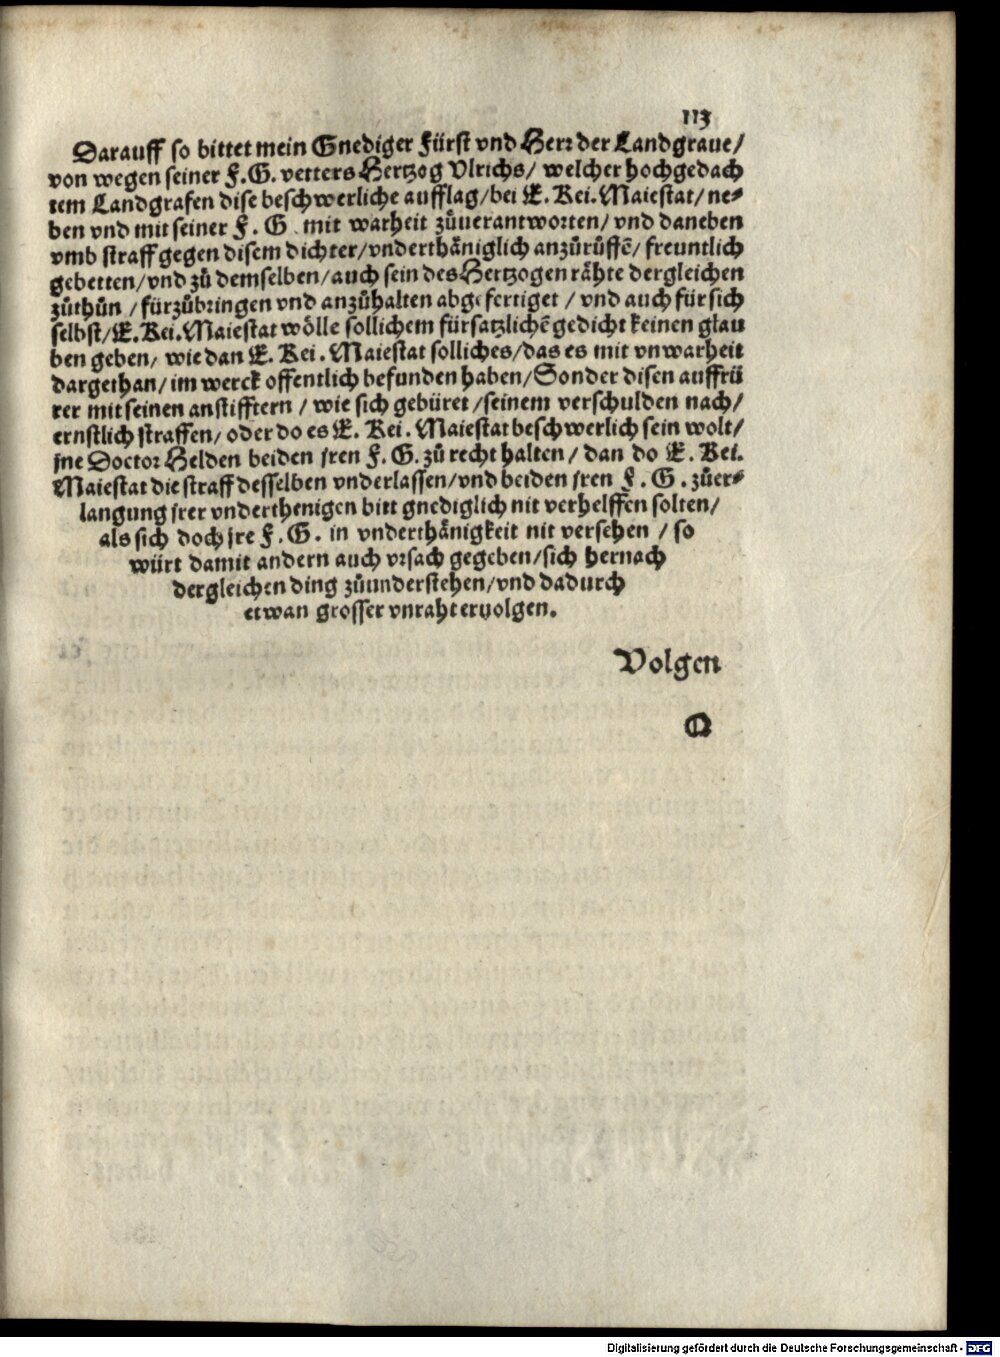 113
Darauff so bittet mein Gnediger Fürst vnd Herr der Landgraue/
von wegen seiner F.G. vetters Hertzog Vlrichs/ welcher hochgedach
tem Landgrafen dise beschwerliche aufflag/bei E. Kei. Maiestat/ ne⸗
ben vnd mit seiner F. G. mit warheit zůuerantworten/ vnd daneben
vmb straff gegen disem dichter/vnderthäniglich anzůrůffē/ freuntlich
gebetten/vnd zů demselben/auch sein des Hertzogen rähte dergleichen
zůthůn / fürzůbringen vnd anzůhalten abgefertiget / vnd auch für sich
selbst/E. Kei. Maiestat wölle sollichem fürsatzlichē gedicht keinen glau
ben geben/ wie dan E. Kei. Maiestat solliches/das es mit vnwarheit
dargethan/im werck offentlich befunden haben/Sonder disen auffrü
rer mit seinen anstifftern / wie sich gebüret /seinem verschulden nach/
ernstlich straffen/ oder do es E. Kei. Maiestat beschwerlich sein wolt/
jne Doctor Helden beiden jren F. G. zů recht halten/ dan do E. Kei.
Maiestat die straff desselben vnderlassen/vnd beiden jren F. G. zůer⸗
langung jrer vnderthenigen bitt gnediglich nit verhelffen solten/
als sich doch jre F. G. in vnderthänigkeit nit versehen / so
würt damit andern auch vrsach gegeben/sich hernach
dergleichen ding zůunderstehen/vnd dadurch
etwan grosser vnraht eruolgen.
Volgen
Q
Digitalisierung gefördert durch die Deutsche Forschungsgemeinschaft - DFG